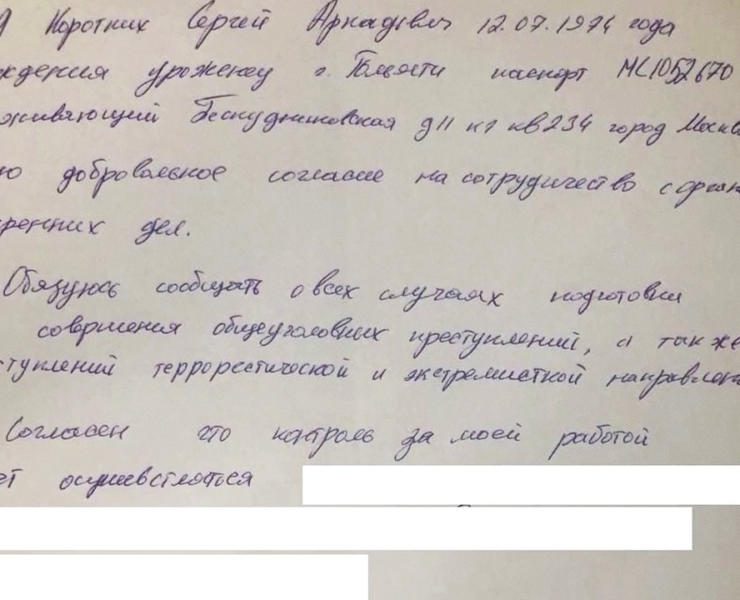 Я Коротких Сергей Аркадьевич 12.07.1974 года
ждения уроженец г. Тольятти паспорт МС1052670
живающий Бескудниковская д11 к1 кв234 город Москв
ю добровольное согласие на сотрудничество с орган
ренних дел.
Обязуюсь сообщать о всех случаях подготовки
совершения общеуголовных преступлений, а так же
ступлений террорестической и экстремисткой направлен
Согласен что контроль за моей работой
ет осущевстляться